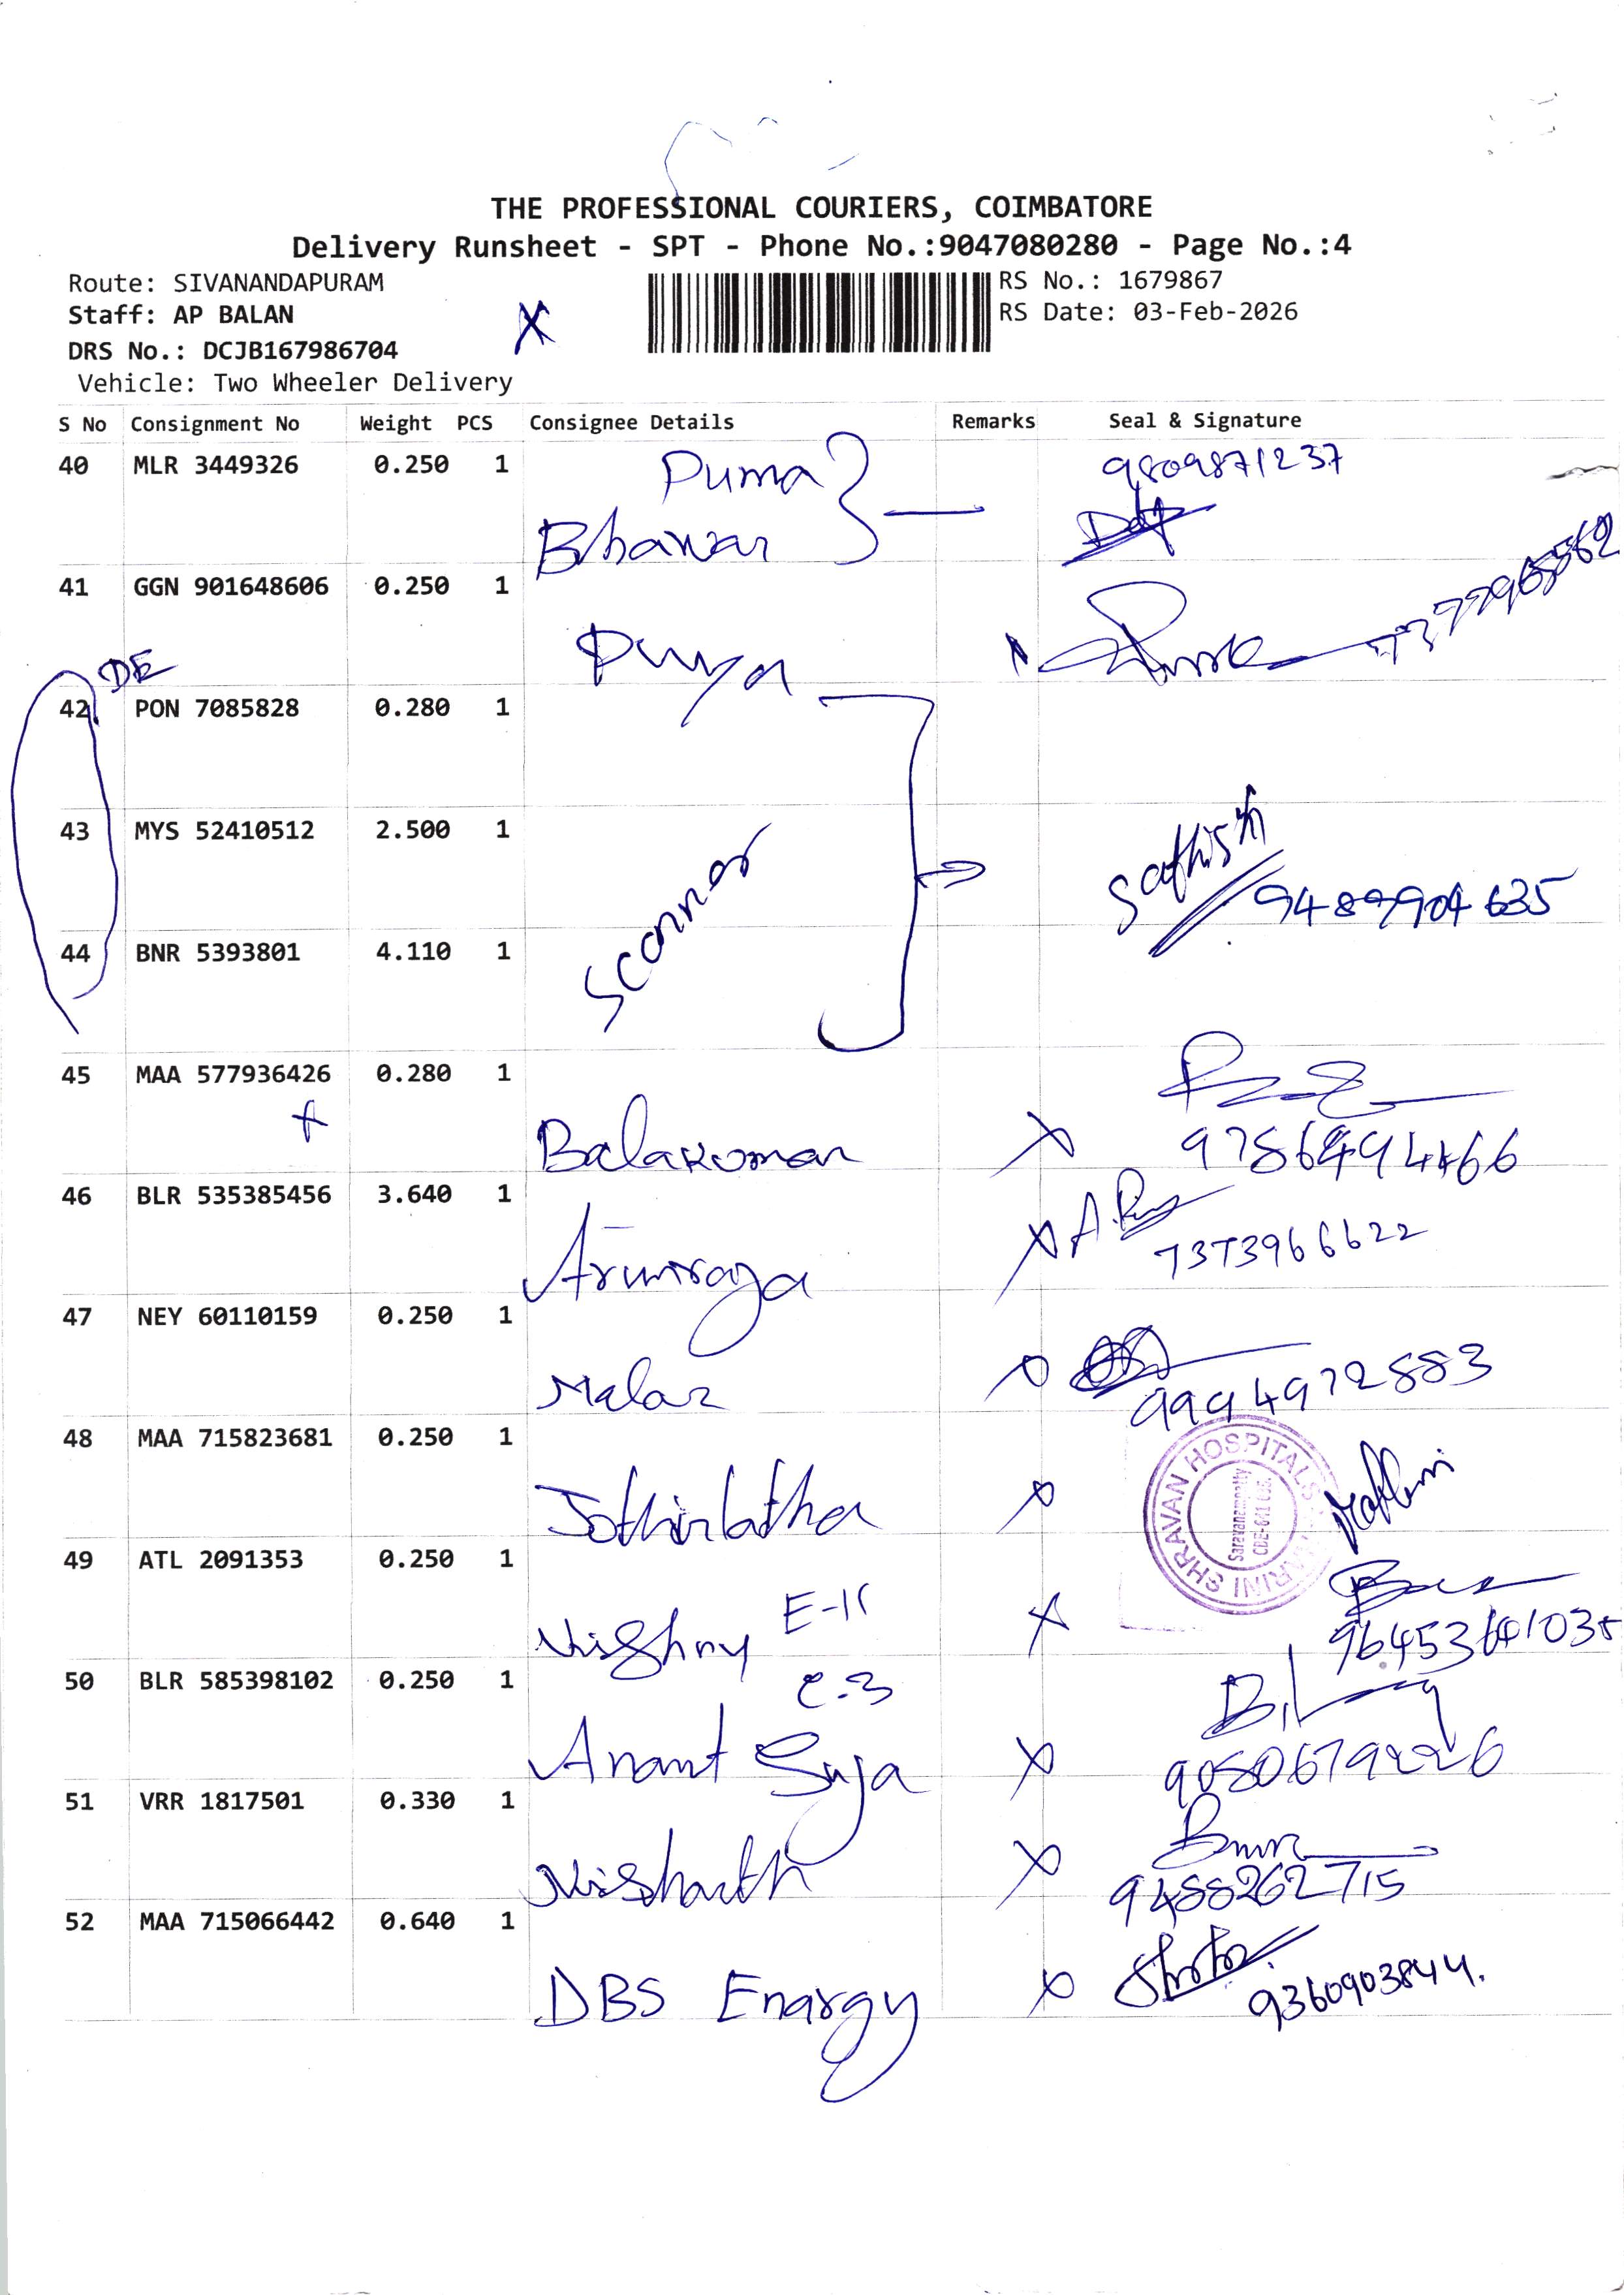 THE PROFESSIONAL COURIERS, COIMBATORE
Delivery Runsheet - SPT - Phone No.:9047080280 - Page No.:4
Route: SIVANANDAPURAM
RS No.: 1679867
Staff: AP BALAN
RS Date: 03-Feb-2026
DRS No.: DCJB167986704
Vehicle: Two Wheeler Delivery
S No Consignment No Weight PCS Consignee Details Remarks Seal & Signature
40 MLR 3449326 0.250 1 Puma 9809871237
Bhawan
41 GGN 901648606 0.250 1
DE
42 PON 7085828 0.280 1
43 MYS 52410512 2.500 1 Scanner Sathish
9489904635
44 BNR 5393801 4.110 1
45 MAA 577936426 0.280 1
Balakuman
46 BLR 535385456 3.640 1
7373966622
47 NEY 60110159 0.250 1
Malar 9994972883
48 MAA 715823681 0.250 1
SHRAVAN HOSPITALS
Saravanampatty
49 ATL 2091353 0.250 1
E-11
50 BLR 585398102 0.250 1
C-3
Anant Suja
51 VRR 1817501 0.330 1
9488262715
52 MAA 715066442 0.640 1
DBS Enargy 9360903844.